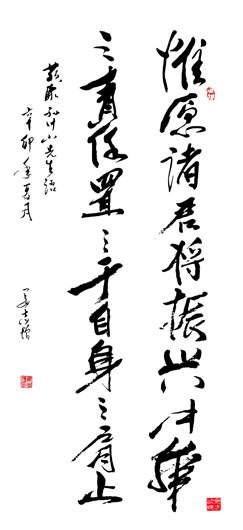 惟愿诸君将振兴中华
之责任置之于自身之肩上
敬录孙中山先生语
辛卯年夏月